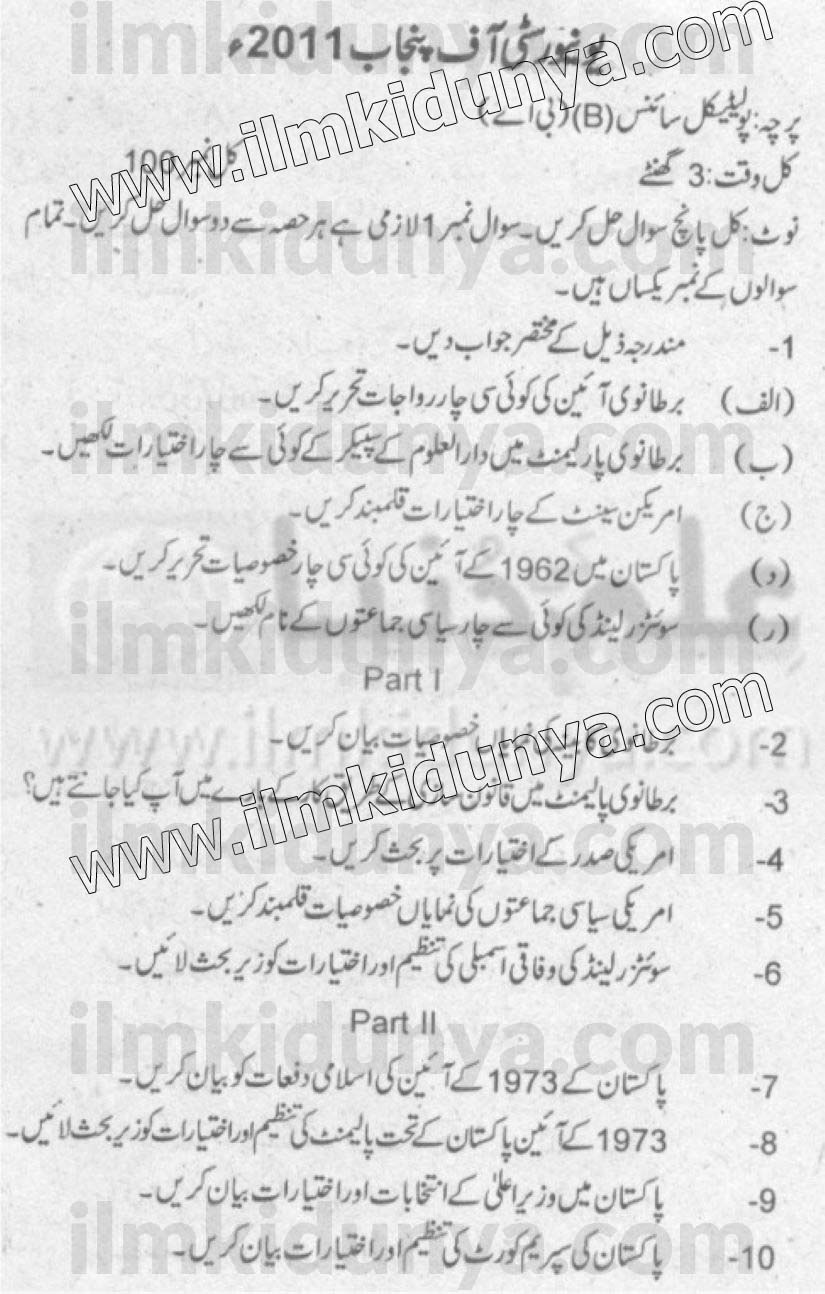 یونیورسٹی آف پنجاب 2011ء
پرچہ: پولیٹیکل سائنس (B) (بی اے)
کل وقت: 3 گھنٹے کل نمبر 100
نوٹ: کل پانچ سوال حل کریں۔ سوال نمبر 1 لازمی ہے ہر حصہ سے دو سوال حل کریں۔ تمام
سوالوں کے نمبر یکساں ہیں۔
1- مندرجہ ذیل کے مختصر جواب دیں۔
(الف) برطانوی آئین کی کوئی سی چار رواجات تحریر کریں۔
(ب) برطانوی پارلیمنٹ میں دارالعلوم کے سپیکر کے کوئی سے چار اختیارات لکھیں۔
(ج) امریکن سینٹ کے چار اختیارات قلمبند کریں۔
(د) پاکستان میں 1962 کے آئین کی کوئی سی چار خصوصیات تحریر کریں۔
(ر) سوئٹزرلینڈ کی کوئی سے چار سیاسی جماعتوں کے نام لکھیں۔
Part I
2- برطانوی کابینہ کی نمایاں خصوصیات بیان کریں۔
3- برطانوی پالیمنٹ میں قانون سازی کے طریق کار کے بارے میں آپ کیا جانتے ہیں؟
4- امریکی صدر کے اختیارات پر بحث کریں۔
5- امریکی سیاسی جماعتوں کی نمایاں خصوصیات قلمبند کریں۔
6- سوئٹزرلینڈ کی وفاقی اسمبلی کی تنظیم اور اختیارات کو زیر بحث لائیں۔
Part II
7- پاکستان کے 1973 کے آئین کی اسلامی دفعات کو بیان کریں۔
8- 1973 کے آئین پاکستان کے تحت پالیمنٹ کی تنظیم اور اختیارات کو زیر بحث لائیں۔
9- پاکستان میں وزیراعلیٰ کے انتخابات اور اختیارات بیان کریں۔
10- پاکستان کی سپریم کورٹ کی تنظیم اور اختیارات بیان کریں۔
www.ilmkidunya.com
www.ilmkidunya.com
ilmkidunya.com
علم کی دنیا